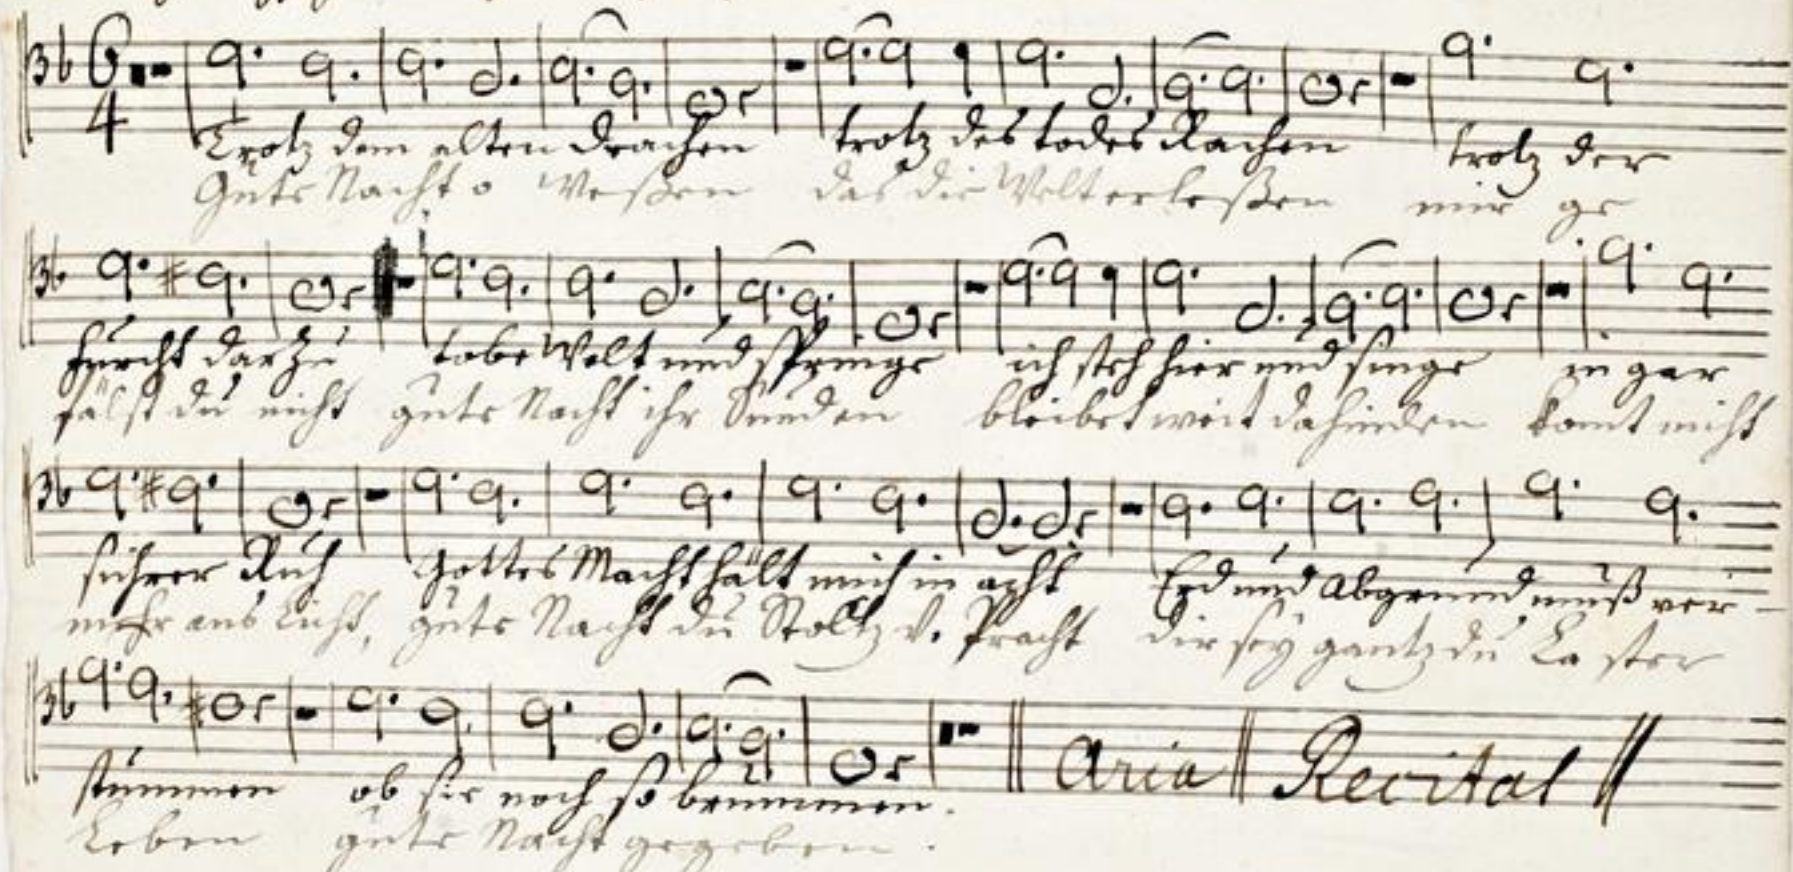 6
4
Trotz dem alten Drachen trotz des todes Rachen trotz der
Gute Nacht o Weßen das die Welt erleßen mir ge
furcht darzu tobe Welt und springe ich steh hier und singe in gar
fälst du nicht gute Nacht ihr Sünden bleibet weit dahinden komt nicht
sichrer Ruh Gottes Macht hält mich in acht Erd und Abgrund muß ver-
mehr ans Licht, gute Nacht du Stoltz v. Pracht dir sey gantz du Laster
stummen ob sie noch so brummen.
Leben gute Nacht gegeben.
Aria Recitat